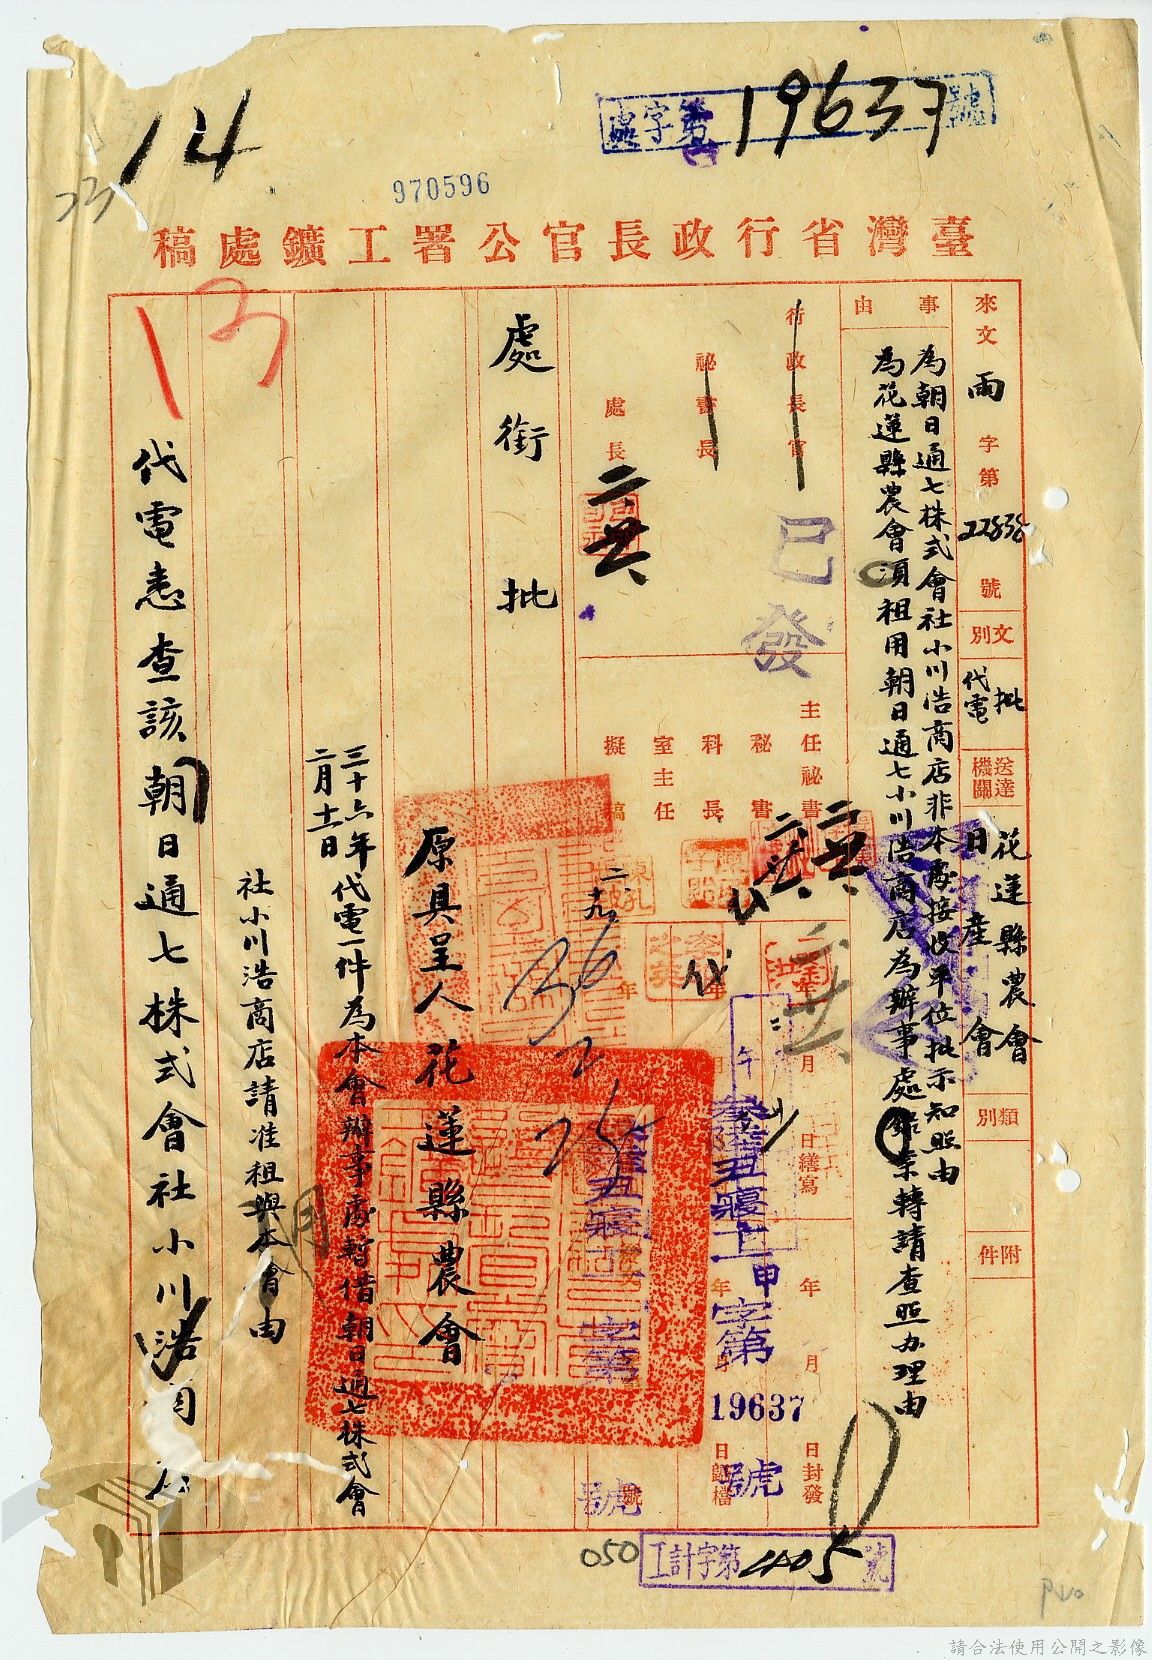 14
處字第19637號
970596
臺灣省行政長官公署工鑛處稿
來文 雨字第22838號
文別 批 代電
送達機關 花蓮縣農會 日產會
類別
附件
事由
為朝日通七株式會社小川浩商店非本處接收單位批示知照由
為花蓮縣農會須租用朝日通七小川浩商店為辦事處轉請查照办理由
行政長官
秘書長
處長
已發
主任秘書
秘書
科長
室主任
擬稿
處銜 批
原具呈人 花蓮縣農會
三十六年二月十二日代電一件為本會辦事處暫借朝日通七株式會
社小川浩商店請准租與本會由
代電悉查該朝日通七株式會社小川浩商店
字第
19637
號
年月日封發
日歸檔
050
工計字第405號
請合法使用公開之影像